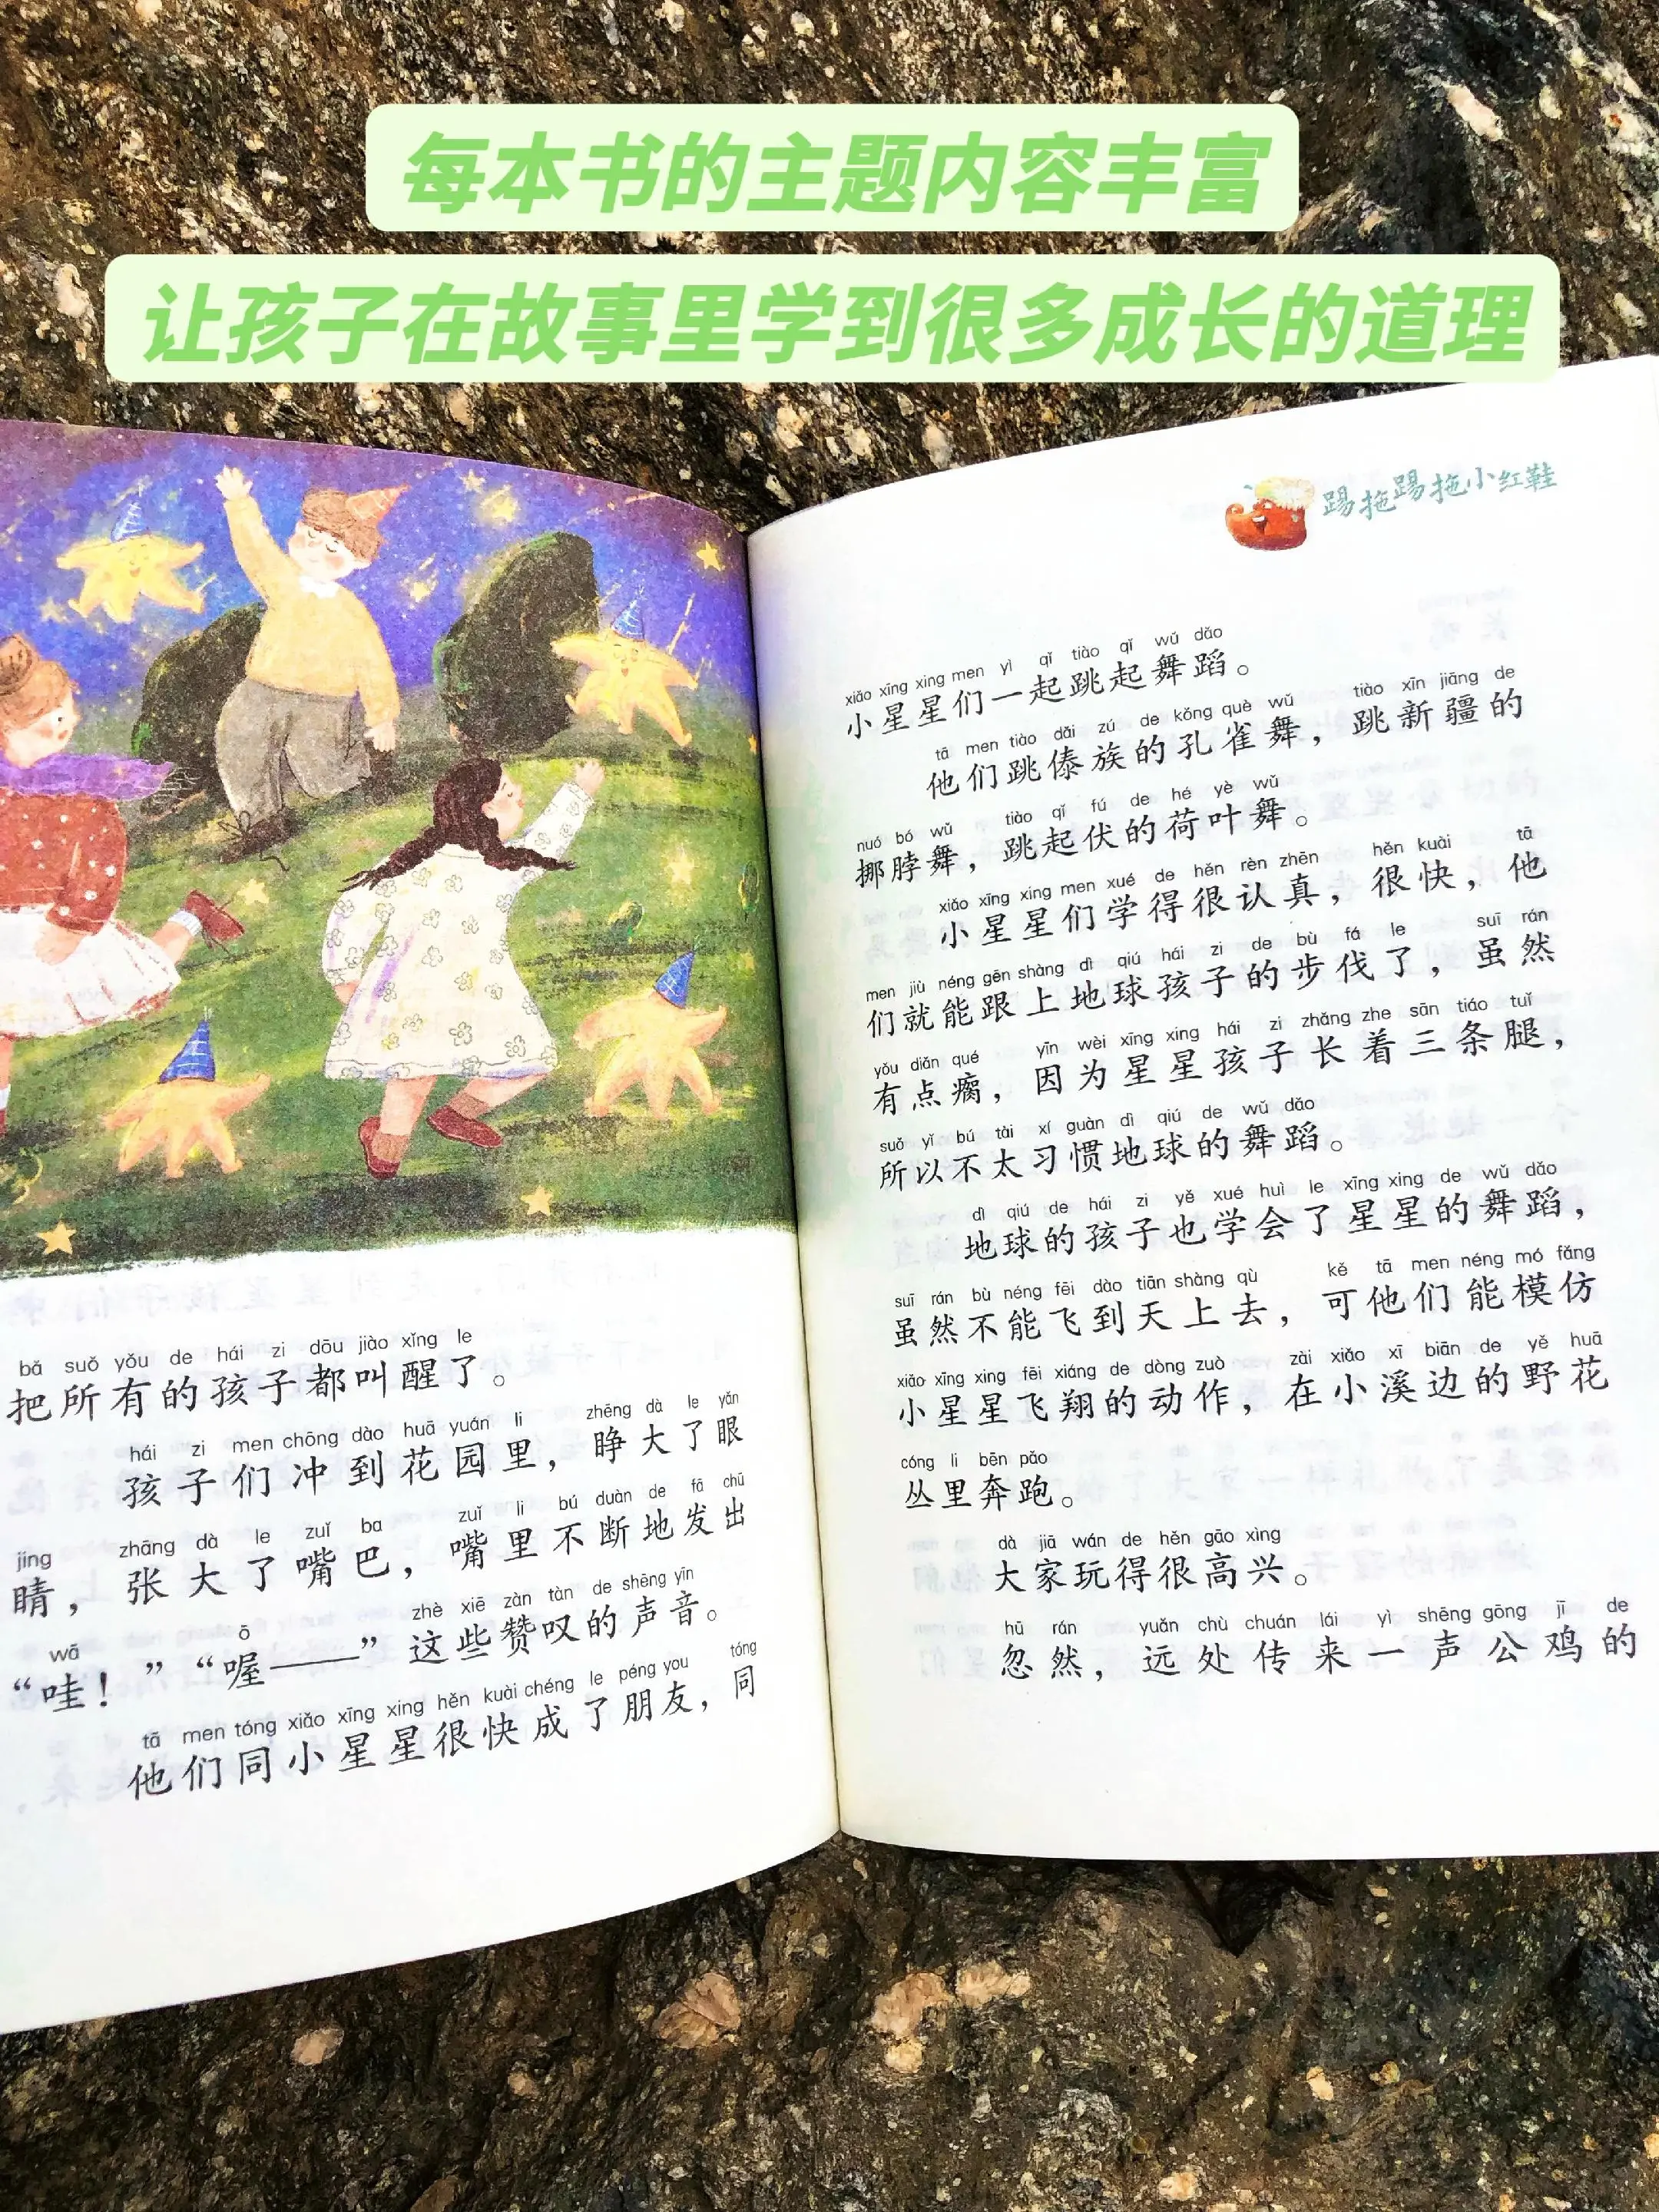 每本书的主题内容丰富
让孩子在故事里学到很多成长的道理
bǎ suǒ yǒu de hái zi dōu jiào xǐng le
把所有的孩子都叫醒了。
hái zi men chōng dào huā yuán li zhēng dà le yǎn
孩子们冲到花园里，睁大了眼
jing zhāng dà le zuǐ ba zuǐ li bú duàn de fā chū
睛，张大了嘴巴，嘴里不断地发出
wā ō zhè xiē zàn tàn de shēng yīn
“哇！”“喔——”这些赞叹的声音。
tā men tóng xiǎo xīng xing hěn kuài chéng le péng you tóng
他们同小星星很快成了朋友，同
踢拖踢拖小红鞋
xiǎo xīng xing men yì qǐ tiào qǐ wǔ dǎo
小星星们一起跳起舞蹈。
tā men tiào dǎi zú de kǒng què wǔ tiào xīn jiāng de
他们跳傣族的孔雀舞，跳新疆的
nuó bó wǔ tiào qǐ fú de hé yè wǔ
挪脖舞，跳起伏的荷叶舞。
xiǎo xīng xing men xué de hěn rèn zhēn hěn kuài tā
小星星们学得很认真，很快，他
men jiù néng gēn shàng dì qiú hái zi de bù fá le suī rán
们就能跟上地球孩子的步伐了，虽然
yǒu diǎn qué yīn wèi xīng xing hái zi zhǎng zhe sān tiáo tuǐ
有点瘸，因为星星孩子长着三条腿，
suǒ yǐ bú tài xí guàn dì qiú de wǔ dǎo
所以不太习惯地球的舞蹈。
dì qiú de hái zi yě xué huì le xīng xing de wǔ dǎo
地球的孩子也学会了星星的舞蹈，
suī rán bù néng fēi dào tiān shàng qù kě tā men néng mó fǎng
虽然不能飞到天上去，可他们能模仿
xiǎo xīng xing fēi xiáng de dòng zuò zài xiǎo xī biān de yě huā
小星星飞翔的动作，在小溪边的野花
cóng li bēn pǎo
丛里奔跑。
dà jiā wán de hěn gāo xìng
大家玩得很高兴。
hū rán yuǎn chù chuán lái yì shēng gōng jī de
忽然，远处传来一声公鸡的